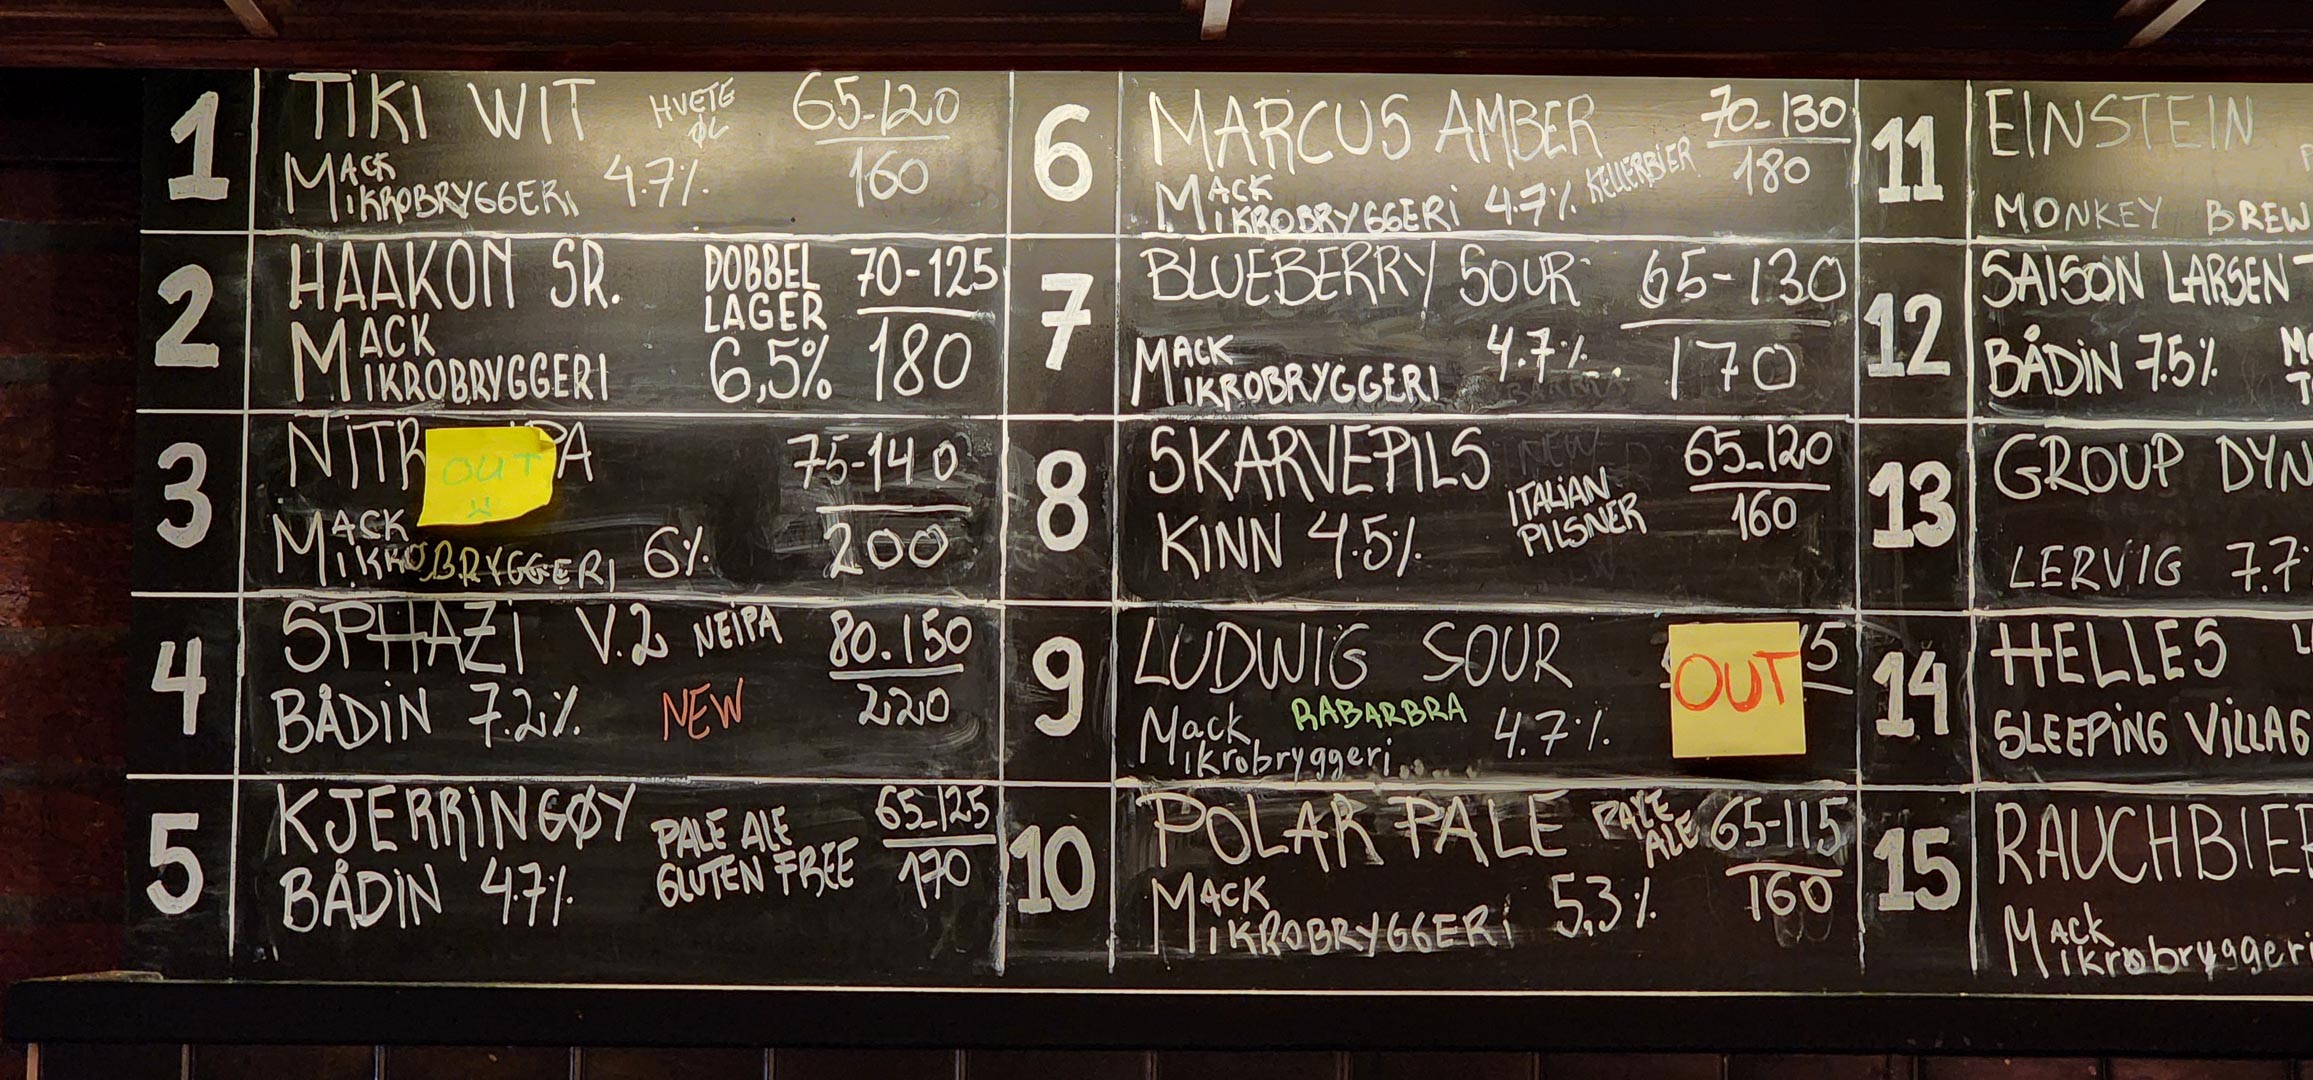 1
TIKI WIT HVETE ØL 65-120
MACK MIKROBRYGGERI 4.7% 160
2
HAAKON SR. DOBBEL LAGER 70-125
MACK MIKROBRYGGERI 6,5% 180
3
NITR OUT PA 75-140
MACK MIKROBRYGGERI 6% 200
4
SPHAZI V.2 NEIPA 80.150
BÅDIN 7.2% NEW 220
5
KJERRINGØY PALE ALE 65-125
BÅDIN 4.7% GLUTEN FREE 170
6
MARCUS AMBER 70-130
MACK MIKROBRYGGERI 4.7% KELLERBIER 180
7
BLUEBERRY SOUR 65-130
MACK MIKROBRYGGERI 4.7% 170
8
SKARVEPILS NEW 65-120
KINN 4.5% ITALIAN PILSNER 160
9
LUDWIG SOUR OUT 5
Mack Mikrobryggeri RABARBRA 4.7%
10
POLAR PALE PALE ALE 65-115
MACK MIKROBRYGGERI 5,3% 160
11
EINSTEIN
MONKEY BREW
12
SAISON LARSEN
BÅDIN 7.5%
13
GROUP DYN
LERVIG 7.7
14
HELLES
SLEEPING VILLAG
15
RAUCHBIE
MACK Mikrobryggeri